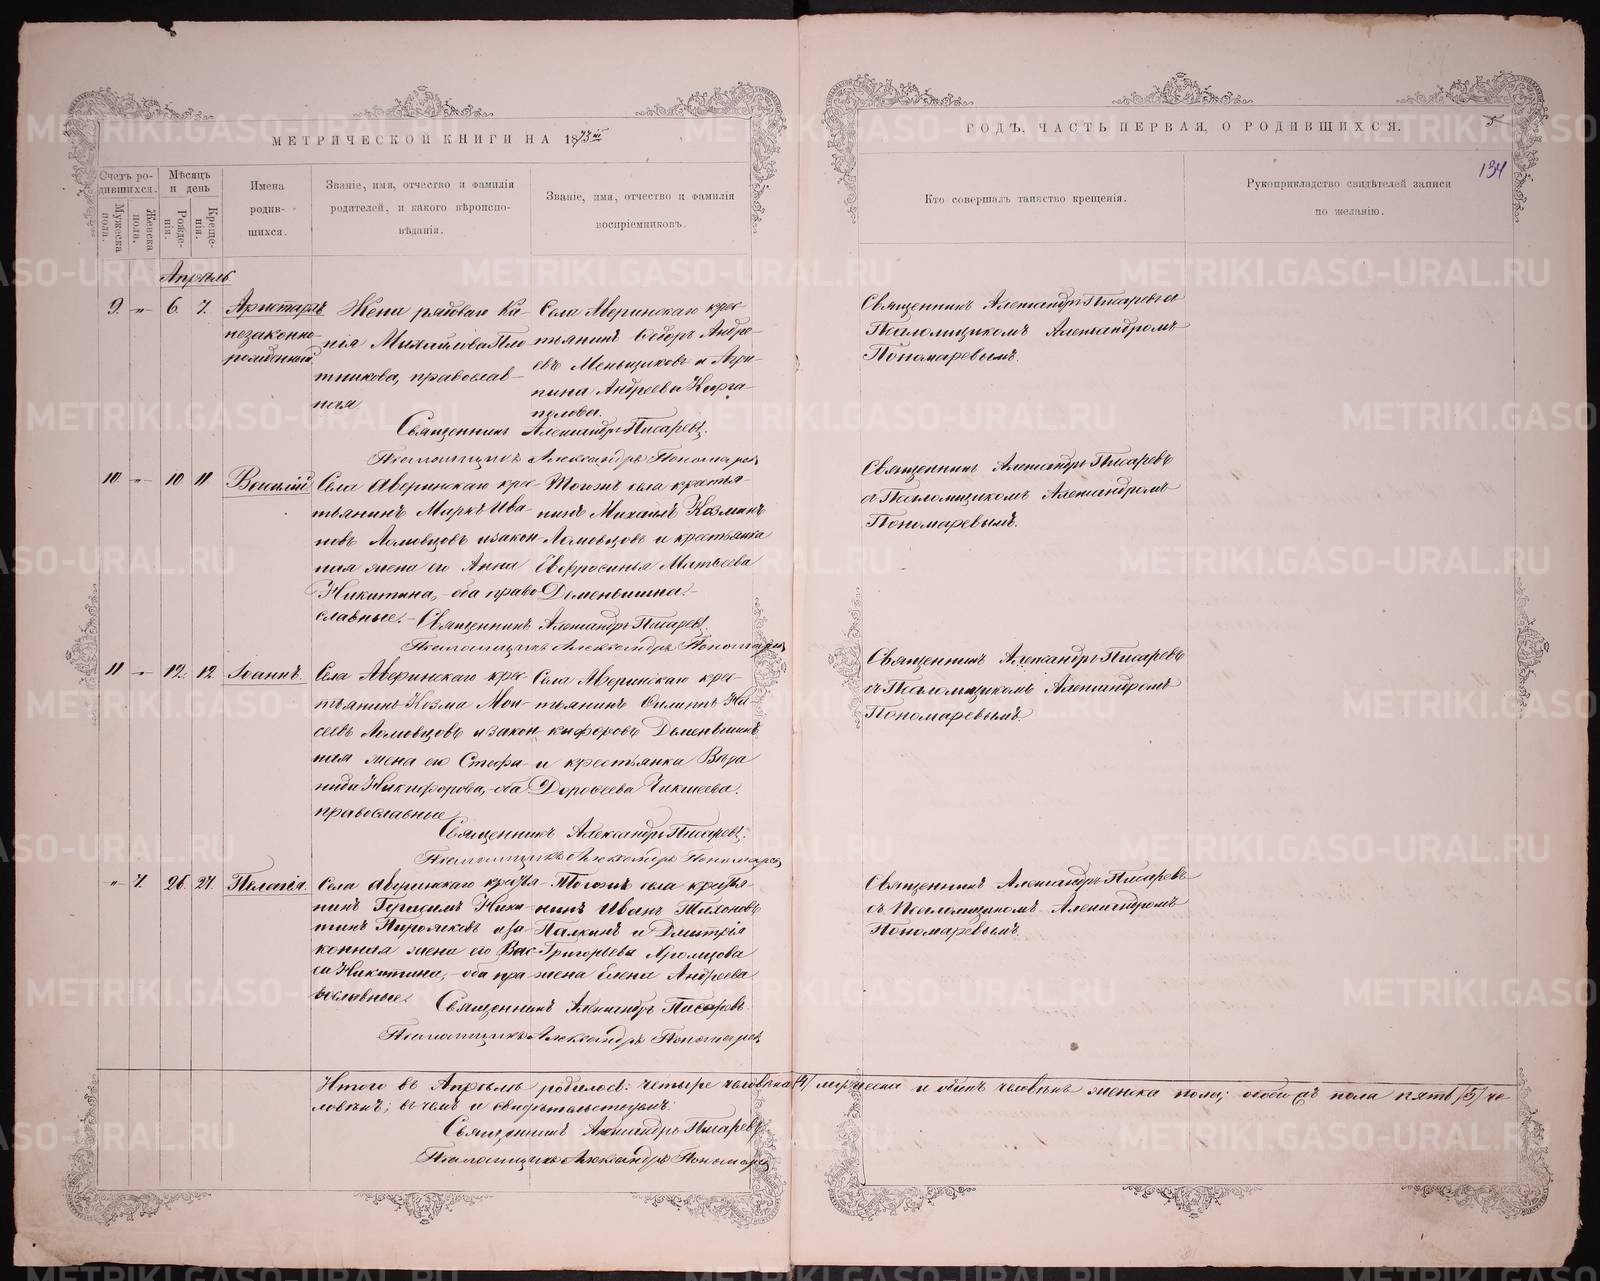 МЕТРИЧЕСКОЙ КНИГИ НА 1873й
ГОДЪ, ЧАСТЬ ПЕРВАЯ, О РОДИВШИХСЯ.
5
134
Счетъ родившихся.
Мужеска пола.
Женска пола.
Мѣсяцъ и день
Рожденія.
Крещенія.
Имена родившихся.
Званіе, имя, отчество и фамилія
родителей, и какого вѣроисповѣданія.
Званіе, имя, отчество и фамилія
воспріемниковъ.
Кто совершалъ таинство крещенія.
Рукоприкладство свидѣтелей записи
по желанію.
Апрѣль
9. " 6. 7.
Аристархъ
незаконно
рожденный
Жена рядоваго Ка-
нія Михайлова Пло
тникова, православ-
ная
Села Аверинскаго крес-
тьянинъ Ѳедоръ Андре-
евъ Меньщиковъ и Агри-
пина Андреева Карга-
полова.
Священникъ Александръ Писаревъ.
Псаломщикъ Александръ Пономаревъ
Священникъ Александръ Писаревъ съ
Псаломщикомъ Александромъ
Пономаревымъ.
10 " 10 11
Василій
Села Аверинскаго кре-
стьянинъ Маркъ Ива-
новъ Ломовцовъ и закон-
ная жена его Анна
Никитина, оба право
славные.
Тогожъ села крестья
нинъ Михаилъ Козминъ
Ломовцовъ и крестьянка
Евфросинья Матвеева
Деменьшина.
Священникъ Александръ Писаревъ
Псаломщикъ Александръ Пономаревъ
Священникъ Александръ Писаревъ
съ Псаломщикомъ Александромъ
Пономаревымъ.
11 " 12. 12
Іоаннъ.
Села Аверинскаго кре-
стьянинъ Козма Мои-
сеевъ Ломовцовъ и закон-
ная жена его Стефа-
нида Никифорова, оба
православные
Села Аверинскаго кре-
стьянинъ Филиппъ Ни-
кифоровъ Деменьшинъ
и крестьянка Вѣра
Дороѳеева Чикишева.
Священникъ Александръ Писаревъ.
Псаломщикъ Александръ Пономаревъ
Священникъ Александръ Писаревъ
съ Псаломщикомъ Александромъ
Пономаревымъ.
" 7. 26. 27.
Пелагія.
Села Аверинскаго крестья-
нинъ Герасимъ Ники-
тинъ и за
конная жена его Вас
са Никитина, оба пра
вославные.
Тогожъ села крестья-
нинъ Иванъ Тихоновъ
Палкинъ и Дмитрія
Григорьева Хромцова
жена Елена Андреева
Священникъ Александръ Писаревъ.
Псаломщикъ Александръ Пономаревъ
Священникъ Александръ Писаревъ
съ Псаломщикомъ Александромъ
Пономаревымъ.
Итого въ Апрѣлѣ родилось: четыре человѣка (4) мужеска и одинъ человѣкъ женска пола; обоего пола пять (5) че-
ловѣкъ; въ чемъ и свидѣтельствуемъ:
Священникъ Александръ Писаревъ
Псаломщикъ Александръ Пономаревъ
METRIKI.GASO-URAL.RU